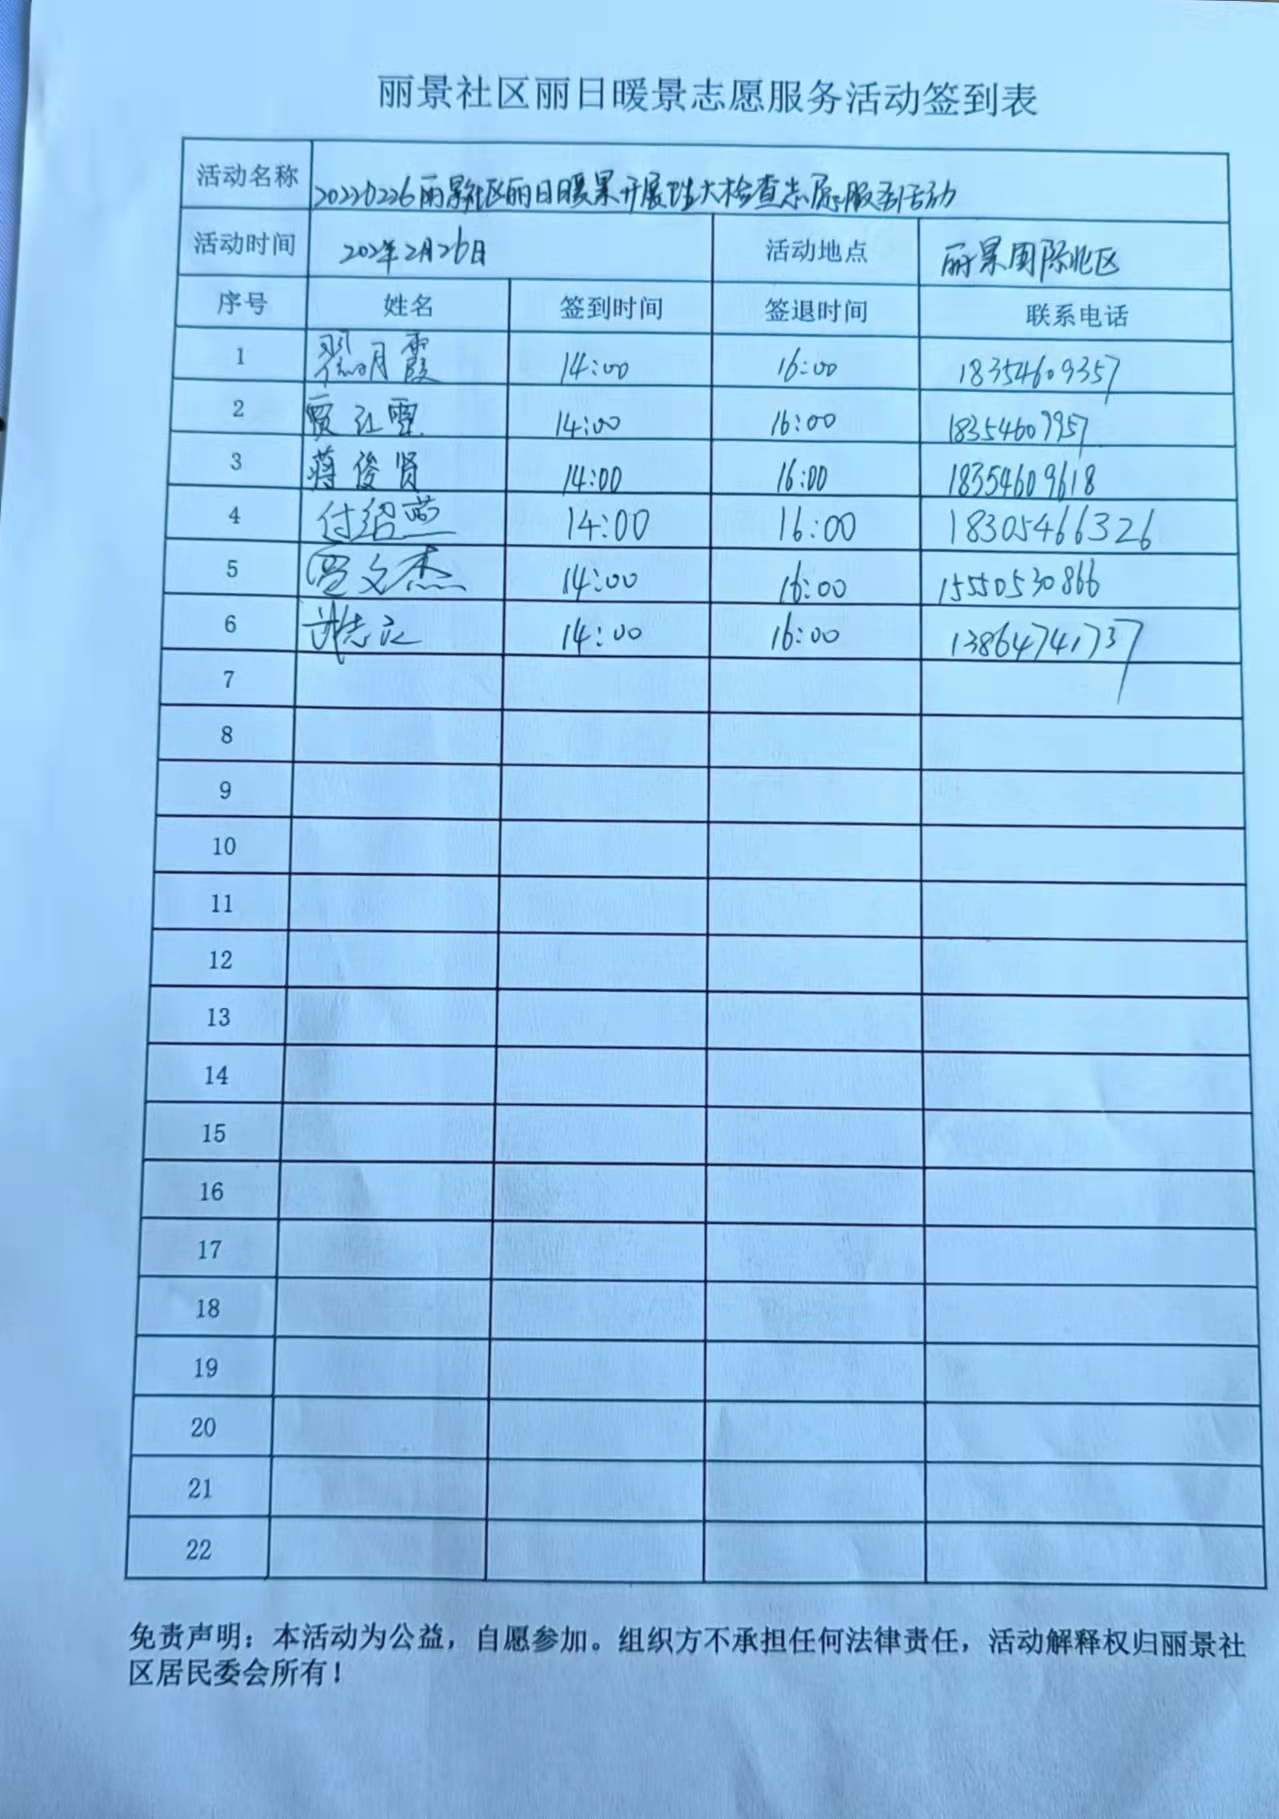 丽景社区丽日暖景志愿服务活动签到表
活动名称 20220226丽景社区丽日暖景开展 大检查志愿服务活动
活动时间 2022年2月26日 活动地点 丽景国际北区
序号 姓名 签到时间 签退时间 联系电话
1 月霞 14:00 16:00 18354609357
2 贾红雪 14:00 16:00 18354607957
3 蒋俊贤 14:00 16:00 18354609618
4 付绍燕 14:00 16:00 18305466326
5 文杰 14:00 16:00 15550530866
6 14:00 16:00 13864741737
7
8
9
10
11
12
13
14
15
16
17
18
19
20
21
22
免责声明：本活动为公益，自愿参加。组织方不承担任何法律责任，活动解释权归丽景社
区居民委会所有！